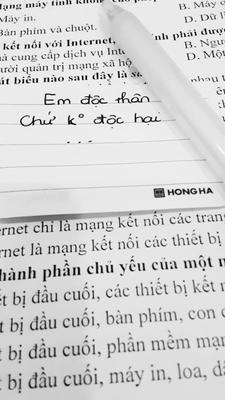 dạng máy tính
Máy in.
B. Máy
Bàn phím và chuột.
D. Dữ
kết nối với Internet,
phải được
à cung cấp dịch vụ
B. Ngư
ười quản trị mạng xã hộ
D. Một
út biểu nào sau đây là
nhau
Em độc thân
Chứ k° độc hại
...
HONG HA
rnet chỉ là mạng kết nối các tran
rnet là mạng kết nối các thiết bị
hành phần chủ yếu của một
t bị đầu cuối, các thiết bị kết
t bị đầu cuối, bàn phím, con
t bị đầu cuối, phần mềm mạ
t bị đầu cuối, máy in, loa,